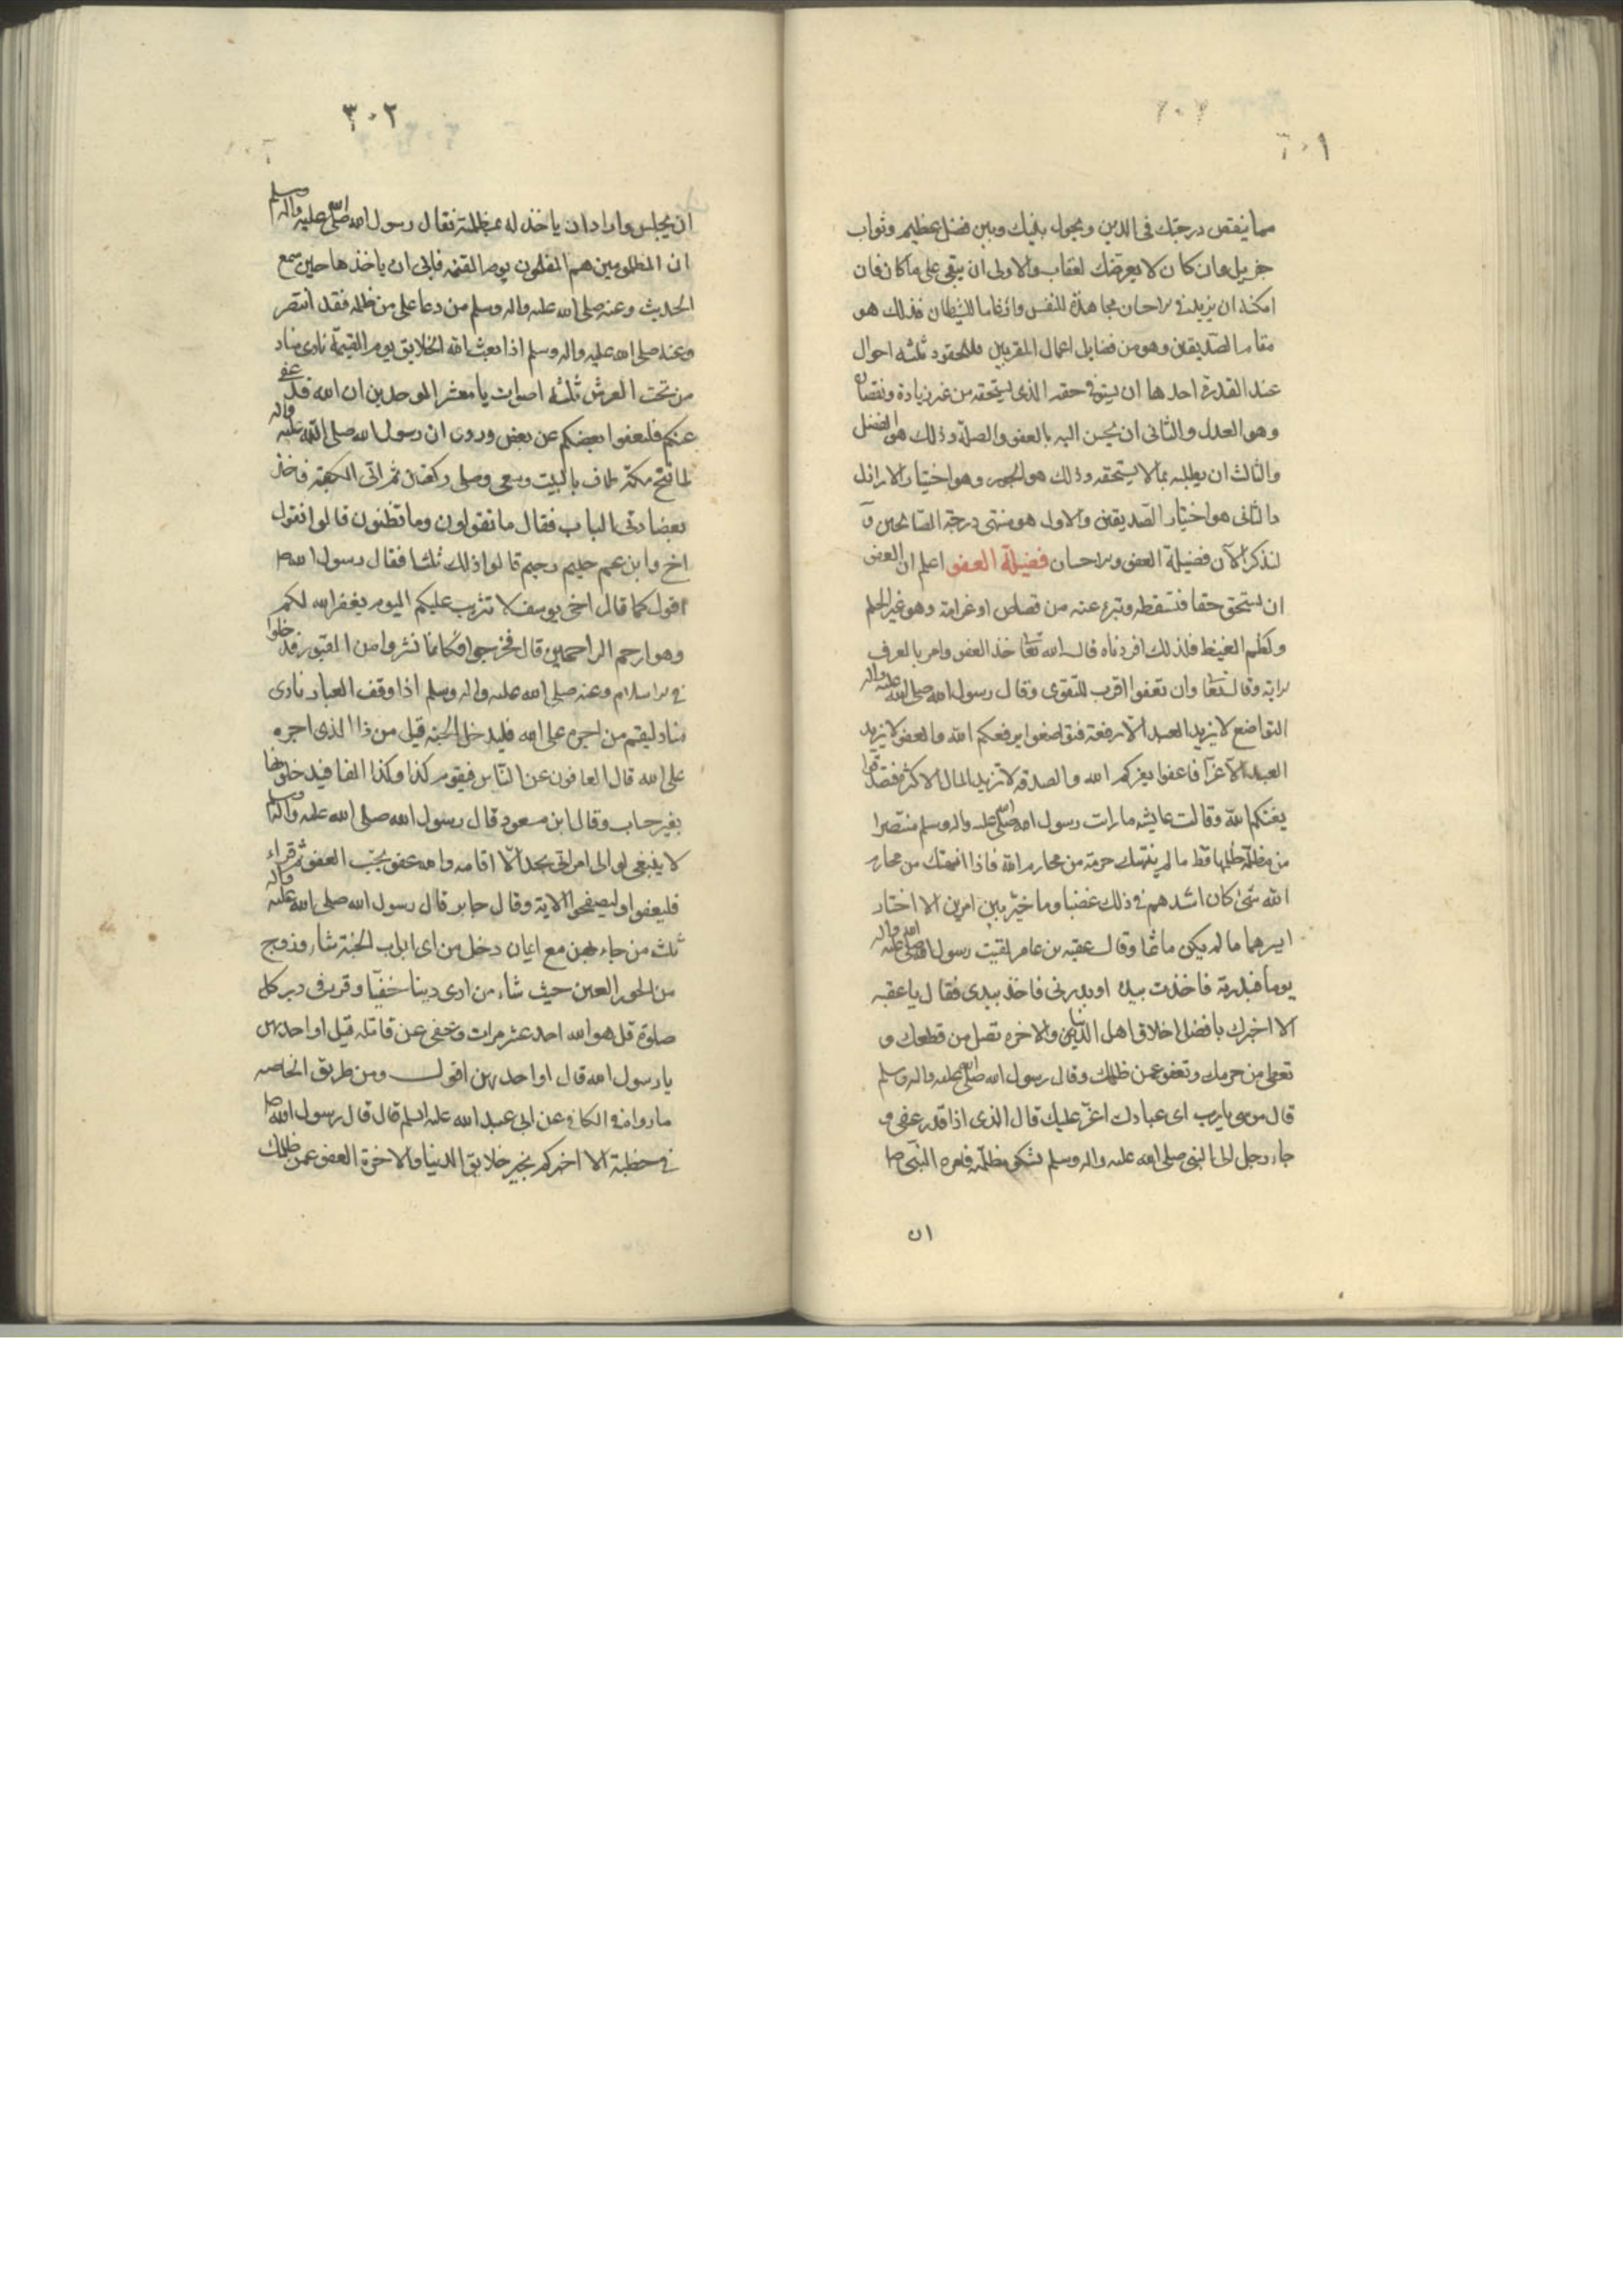 ٣٠١
مما ينقص درجتك فى الدين ويحول بينك وبين فضل عظيم وثواب
جزيل وان كان لا يعرضك لعقاب والاولى ان يبقى على ما كان فان
امكنه ان يزيد فى الاحسان مجاهدة للنفس وارغاما للشيطان فذلك هو
مقام الصديقين وهو من فضايل اعمال المقربين فللمحقود ثلثه احوال
عند القدرة احدها ان يستوفى حقه الذى يستحقه من غير زيادة ونقصان
وهو العدل والثانى ان يحسن اليه بالعفو والصلة وذلك هو الفضل
والثالث ان يظلمه بما لا يستحقه وذلك هو الجور وهو اختيار الاراذل
والثانى هو اختيار الصديقين والاول هو منتهى درجة الصالحين و
لنذكر الآن فضيلة العفو والاحسان فضيلة العفو اعلم ان العفو
ان يستحق حقا فتسقطه وتبرء عنه من قصاص او غرامة وهو غير الحلم
وكظم الغيظ فلذلك افردناه قال الله تعا خذ العفو وامر بالعرف
الاية وقال تعا وان تعفوا اقرب للتقوى وقال رسول الله صلى الله عليه واله
التواضع لا يزيد العبد الا رفعة فتواضعوا يرفعكم الله والعفو لا يزيد
العبد الا عزا فاعفوا يعزكم الله والصدقه لا تزيد المال الا كثرة فتصدقوا
يغنكم الله وقالت عايشه ما رات رسول الله صلى الله عليه واله وسلم منتصرا
من مظلمة ظلمها قط ما لم ينتهك حرمة من محارم الله فاذا انتهك من محارم
الله شئ كان اشدهم فى ذلك غضبا وما خير بين امرين الا اختار
ايسرهما ما لم يكن ماثما وقال عقبه بن عامر لقيت رسول الله صلى الله عليه واله
يوما فبدرته فاخذت بيده او بدرنى فاخذ بيدى فقال يا عقبه
الا اخبرك بافضل اخلاق اهل الدنيا والاخره تصل من قطعك و
تعطى من حرمك وتعفو عمن ظلمك وقال رسول الله صلى الله عليه واله وسلم
قال موسى يا رب اى عبادك اعز عليك قال الذى اذا قدر عفى و
جاء رجل الى النبى صلى الله عليه واله وسلم يشكو مظلمة فامره النبى ص
ان
٣٠٢
ان يجلس واراد ان ياخذ له بمظلمته فقال رسول الله صلى الله عليه واله وسلم
ان المظلومين هم المفلحون يوم القيمه فابى ان ياخذها حين سمع
الحديث وعنه صلى الله عليه واله وسلم من دعا على من ظلمه فقد انتصر
وعنه صلى الله عليه واله وسلم اذا بعث الله الخلايق يوم القيمة نادى مناد
من تحت العرش ثلثه اصوات يا معشر الموحدين ان الله قد عفى
عنكم فليعفوا بعضكم عن بعض وروى ان رسول الله صلى الله عليه واله
لما فتح مكة طاف بالبيت وسعى وصلى ركعتين ثم اتى الكعبة فاخذ
بعضادتى الباب فقال ما تقولون وما تظنون قالوا نقول
اخ وابن عم حليم رحيم قالوا ذلك ثلثا فقال رسول الله ص
اقول كما قال اخى يوسف لا تثريب عليكم اليوم يغفر الله لكم
وهو ارحم الراحمين قال فخرجوا فكانما نشروا من القبور فدخلوا
فى الاسلام وعنه صلى الله عليه واله وسلم اذا وقف العباد نادى
مناد ليقم من اجره على الله فليدخل الجنه قيل من ذا الذى اجره
على الله قال العافون عن الناس فيقوم كذا وكذا الفا فيدخلونها
بغير حساب وقال ابن مسعود قال رسول الله صلى الله عليه واله وسلم
لا ينبغى لوالى امر اتى بحد الا اقامه والله عفو يحب العفو ثم قراء
فليعفوا وليصفحوا الاية وقال جابر قال رسول الله صلى الله عليه واله
ثلث من جاء بهن مع ايمان دخل من اى ابواب الجنة شاء وزوج
من الحور العين حيث شاء من ادى دينا خفيا وقرء فى دبر كل
صلوة قل هو الله احد عشر مرات وعفى عن قاتله قيل او احديهن
يا رسول الله قال او احديهن اقول ومن طريق الخاصه
ما رواه فى الكافى عن ابى عبد الله عليه السلم قال قال رسول الله ص
فى خطبة الا اخبركم بخير خلايق الدنيا والاخرة العفو عمن ظلمك